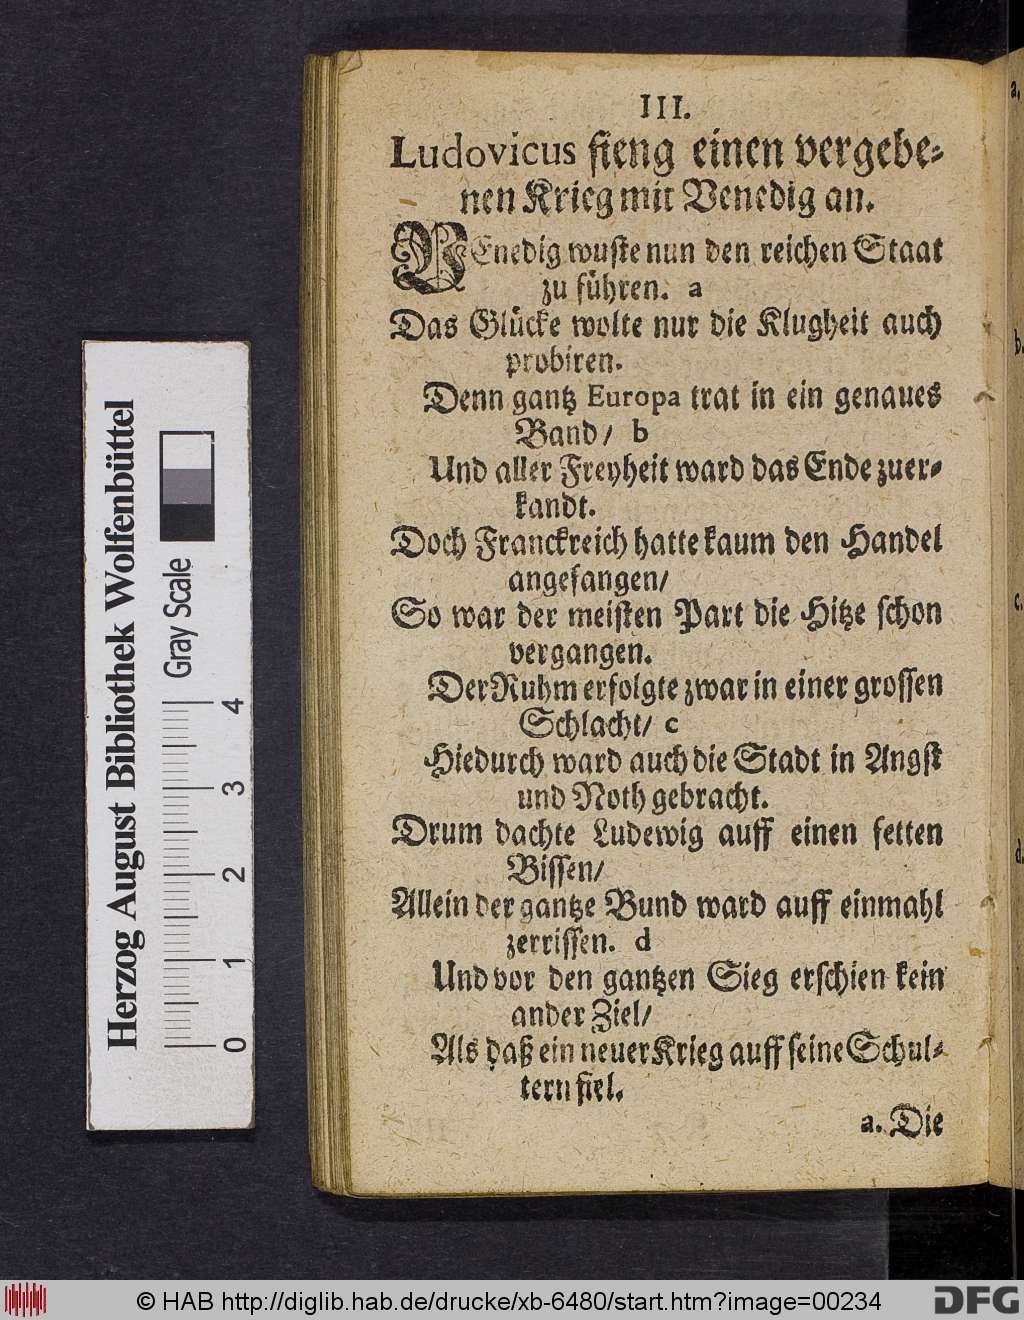 III.
Ludovicus fieng einen vergebe-
nen Krieg mit Venedig an.
VEnedig wuste nun den reichen Staat
zu führen. a
Das Glücke wolte nur die Klugheit auch
probiren.
Denn gantz Europa trat in ein genaues
Band/ b
Und aller Freyheit ward das Ende zuer-
kandt.
Doch Franckreich hatte kaum den Handel
angefangen/
So war der meisten Part die Hitze schon
vergangen.
Der Ruhm erfolgte zwar in einer grossen
Schlacht/ c
Hiedurch ward auch die Stadt in Angst
und Noth gebracht.
Drum dachte Ludewig auff einen fetten
Bissen/
Allein der gantze Bund ward auff einmahl
zerrissen. d
Und vor den gantzen Sieg erschien kein
ander Ziel/
Als daß ein neuer Krieg auff seine Schul-
tern fiel.
a. Die
a.
b.
c.
d.
Herzog August Bibliothek Wolfenbüttel
Gray Scale
0 1 2 3 4
© HAB http://diglib.hab.de/drucke/xb-6480/start.htm?image=00234
DFG